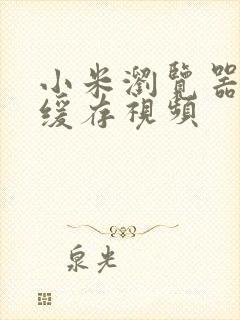 小米瀏覽器
緩存視頻
泉光